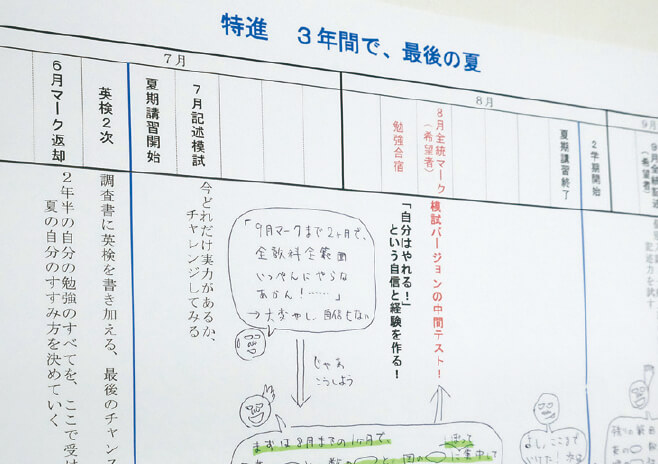 特進　3年間で、最後の夏
7月
8月
9月
6月マーク返却
英検2次
夏期講習開始
7月記述模試
勉強合宿
8月全統マーク
(希望者)
夏期講習終了
2学期開始
9月全統記述
(希望者)
2年半の自分の勉強のすべてを、ここで受け
夏の自分のすすみ方を決めていく
調査書に英検を書き加える、最後のチャンス
今どれだけ実力があるか、
チャレンジしてみる
「自分はやれる！」
という自信と経験を作る！
模試バージョンの中間テスト！
「9月マークまで2ヶ月で、
全教科全範囲
いっぺんにやらな
あかん！……」
じゃあ
こうしよう
まずは8月までの1ヶ月で、
よし、ここまで